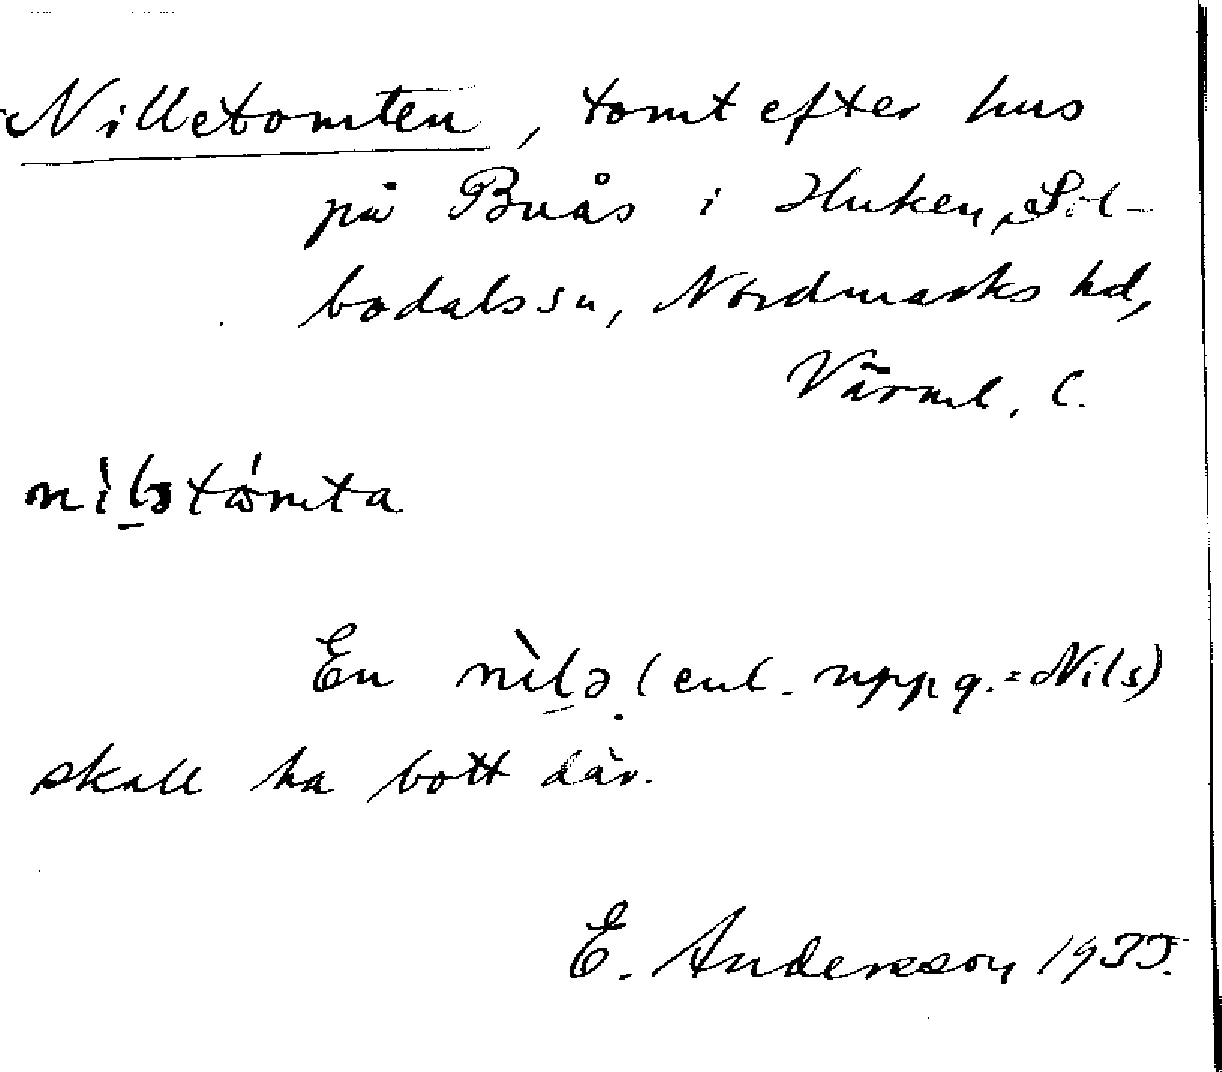 Nilletomten, tomt efter hus
på Buås i Huken, Söl-
bodals sn, Nordmarks hd,
Värml. l.
nìlətómta
En nìlə (enl. uppg. = Nils)
skall ha bott där.
E. Andersson